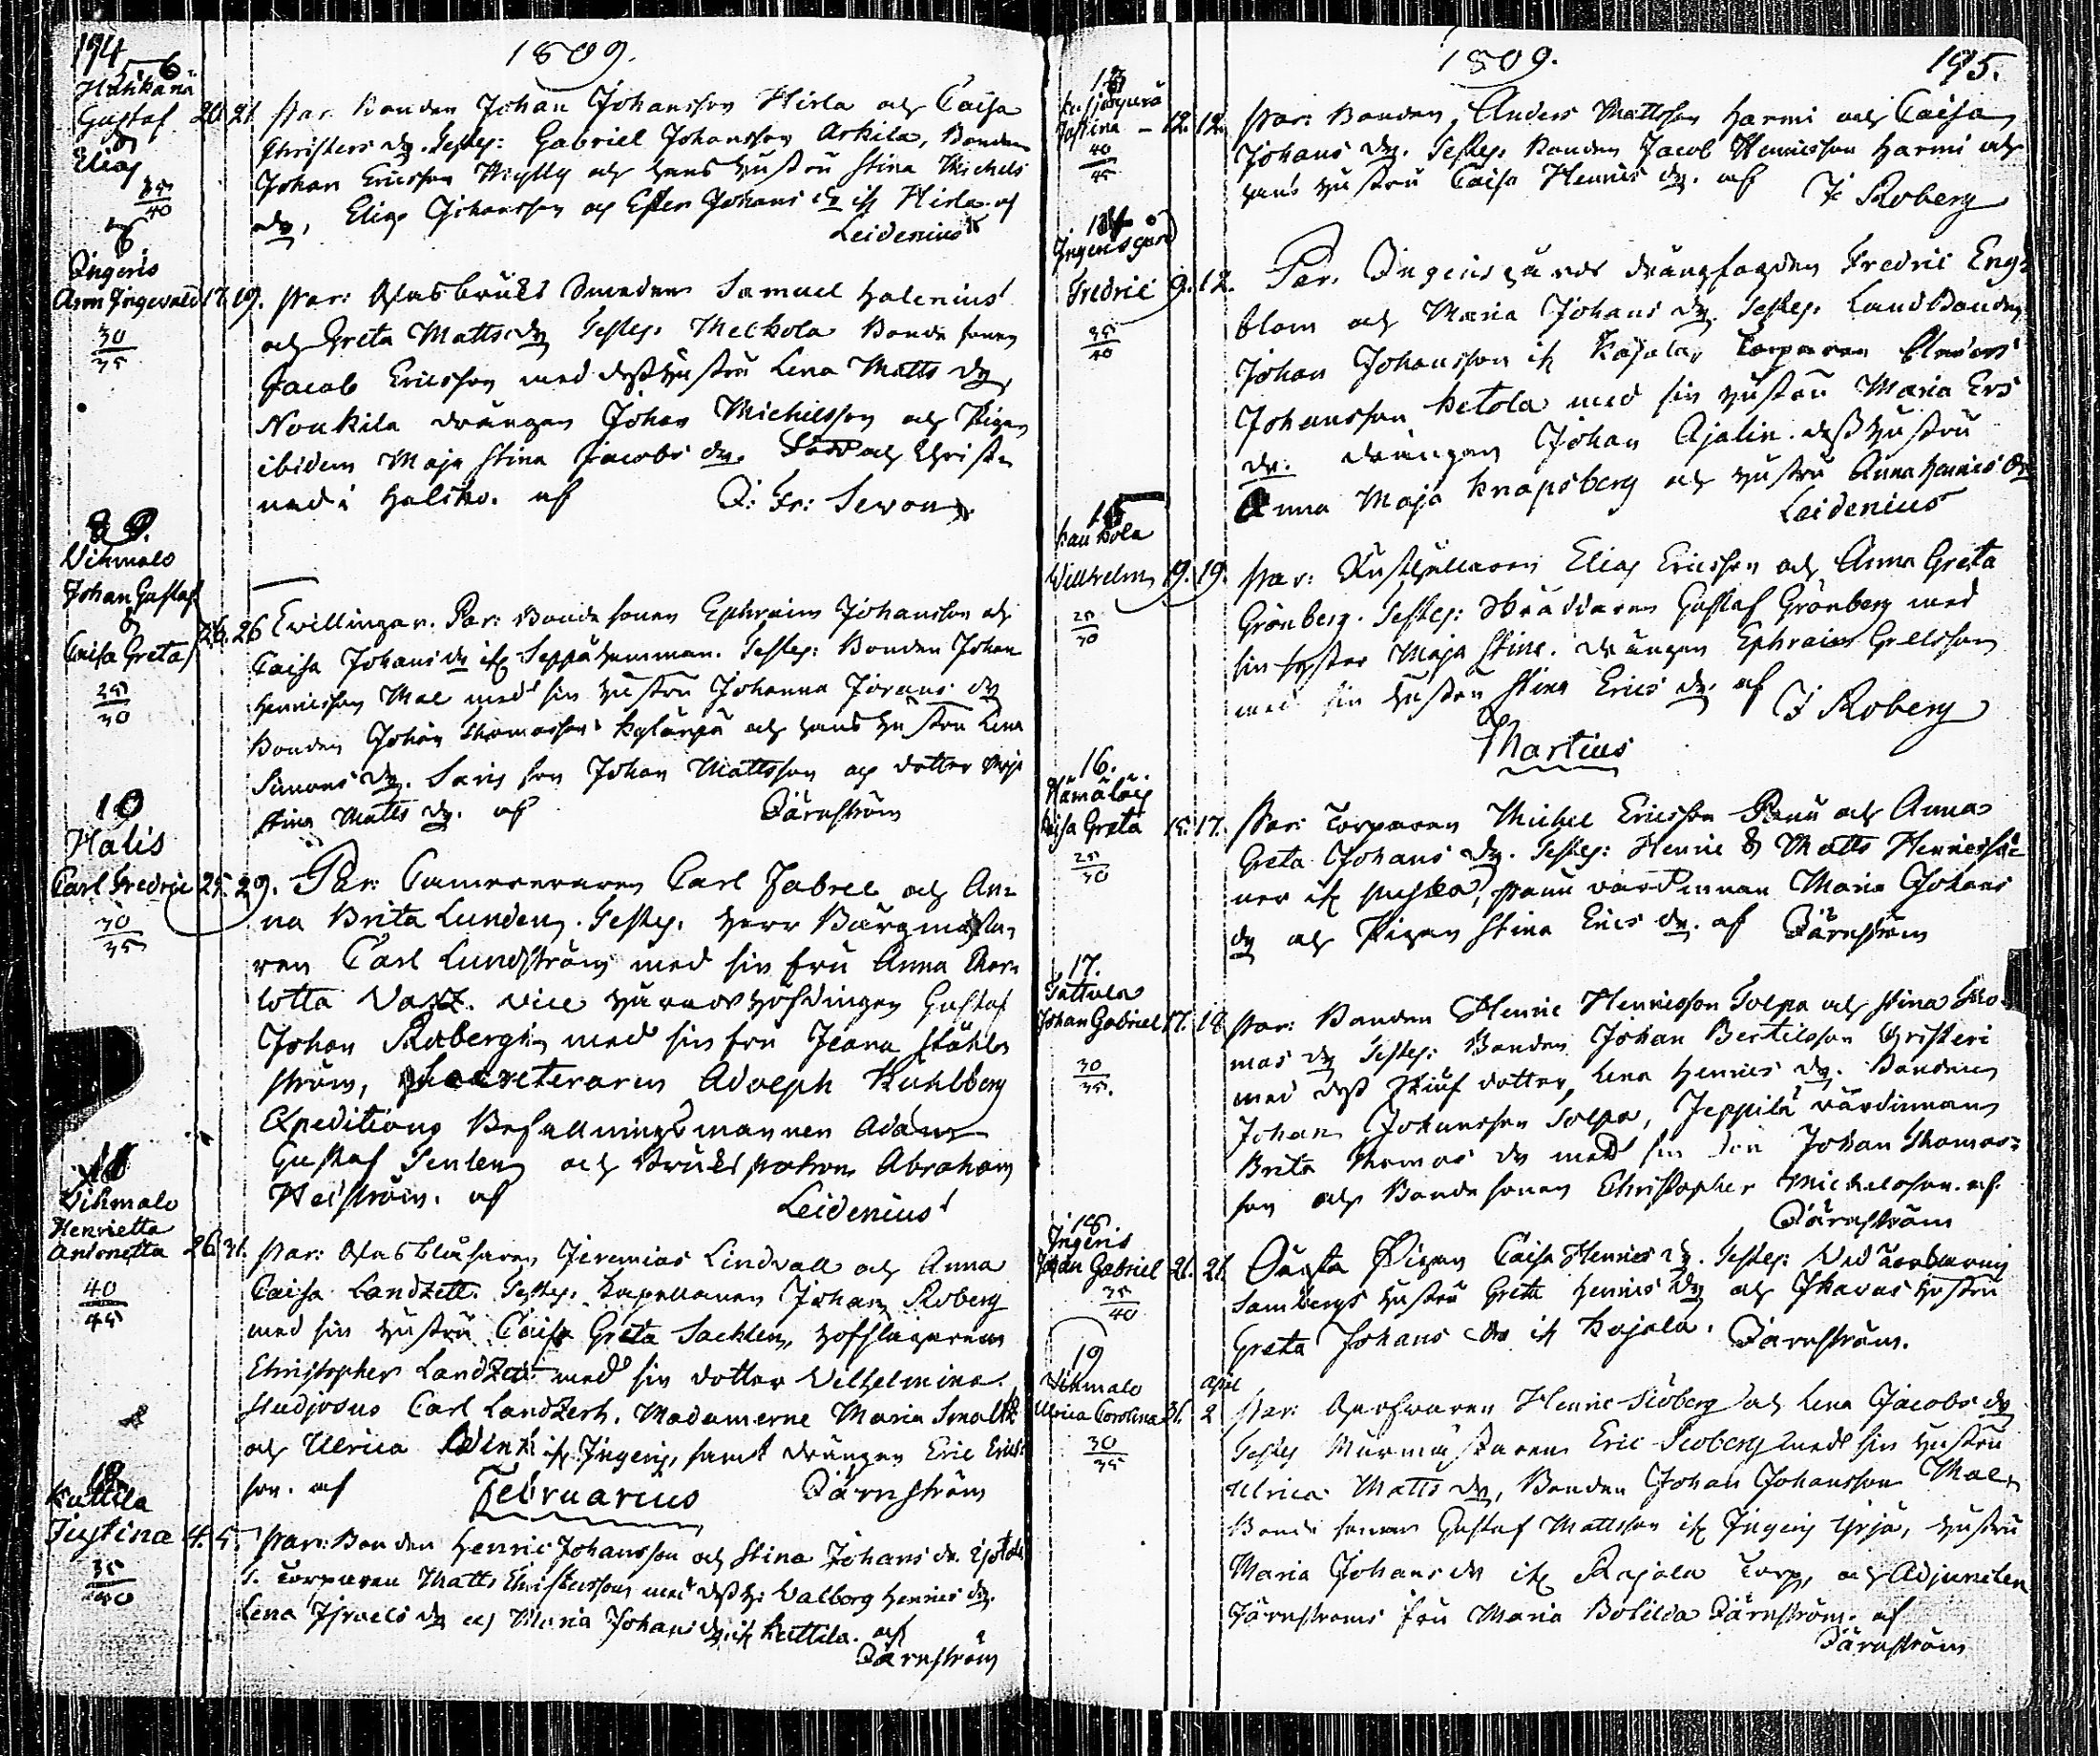 194
1809.
6
Huhkana
Gustaf 20. 21.
&
Elias
35
40
Par. Bonden Johan Johansson Hirla och Caisa
Christers dr. Testes: Gabriel Johansson Arkila, Bonden
Johan Ericsson Mylly och hans hustru Stina Michels
dr, Elias Johansson och Ester Johans dr ifr Hirla. af
Leidenius
Ingeris
Aron Ingevald 17. 19.
30
35
Par: Glasbruks Smeden Samuel Holenius
och Greta Matts dr Testes. Melkola Bonde sonen
Jacob Ericsson med dess hustru Lena Matts dr,
Noukila drängen Johan Michelsson och Pigan
ibidem Maja Stina Jacobs dr. och Christ
nad i Halikko. af
J: Fr: Sevon
8 9.
Vihmalo
Johan Gustaf
&
Caisa Greta 26. 26
25
30
Tvillingar. Par: Bonde sonen Ephraim Johansson och
Caisa Johans dr ifr Seppä hemman. Testes: Bonden Johan
Henricsson Mal med sin hustru Johanna Jörans dr
Bonden Johan Thomasson Kylänpä och hans hustru Lena
Simons dr. Saris son Johan Mattsson och dotter Maja
Stina Matts dr. af
Järnström
10
Halis
Carl Fredric 25. 29.
30
35
Par: Camereraren Carl Fabrel och An=
na Brita Lunden. Testes. Herr Bärgmästa=
ren Carl Lundström med sin fru Anna Char=
lotta Vass. Vice Häradshöfdingen Gustaf
Johan Robergh med sin fru Jeana Ståhl=
ström, Secreteraren Adolph Kuhlberg
Expeditions Befallningsmannen Adam
Gustaf Tenlen och Brukspatron Abraham
Helström. af
Leidenius
11
Vihmalo
Henrietta
Antonetta 26. 31.
40
45
Par: Glasblåsaren Jeremias Lindvall och Anna
Caisa Landzett. Testes. Kapellanen Johan Roberg
med sin hustru Caisa Greta Sachlen, Hofslagaren
Christopher Landzett med sin dotter Vilhelmina.
Studjosus Carl Landzett. Madamerne Maria Smalt
och Ulrica ifr Ingeris, samt drängen Eric Erics=
son. af
Järnström
Februarius
12
Kuttila
Justina 4. 5.
35
40
Par: Bonden Henric Johansson och Stina Johans dr.
T. Torparen Matts Christersson med dess h. Valborg Henrics dr.
Lena Israels dr och Maria Johans dr ifr Kuttila. af
Järnström
1809.
195.
13
Justina – 12. 12.
40
45
Par: Bonden, Anders Mattsson Harmi och Caisa
Johans dr. Testes. Bonden Jacob Henricsson Harmi och
hans hustru Caisa Henrics dr. af
J. Roberg
14
Ingerisgård
Fredric 9. 12.
35
40
Par. Ingerisgårds drängfogden Fredric Eng=
blom och Maria Johans dr. Testes. Landbonden
Johan Johansson ifr Kajala, Torparen
Johansson Ketola med sin hustru Maria Ers
dr. drängen Johan Ajalin. dess hustru
Anna Maja Knapsberg och hustru Anna Henrics dr
Leidenius
15
Kaukola
Willhelm 19. 19.
25
30
Par: Rusthållaren Elias Ericsson och Anna Greta
Grönberg. Testes: Skräddaren Gustaf Grönberg med
sin syster Maja Stina. drängen Ephraim Grelsson
med sin hustru Stina Erics dr. af
J Roberg
Martius
16.
Hämäläis
Caisa Greta 15. 17.
25
30
Par: Torparen Michel Ericsson Panu och Anna
Greta Johans dr. Testes: Henric & Matts Henricssö=
ner ifr Puska, Panu värdinnan Maria Johans
dr och Pigan Stina Erics dr. af Järnström
17.
Tattula
Johan Gabriel 17. 18
30
35.
Par: Bonden Henric Henricsson Tolpa och Stina Tho=
mas dr Testes: Bonden Johan Bertilsson Gristeri
med dess Stiuf dotter, Lena Henrics dr. Bonden
Johan Johansson Tolpa, Jeppilä värdinnan
Brita Thomas dr med sin son Johan Thomas=
son och Bonde sonen Christopher Michelsson. af.
Järnström
18
Ingeris
Johan Gabriel 21. 21.
35
40
Oäkta Pigan Caisa Henrics dr. Testes: Vedkarlens
Sambergs hustru Greta Henrics dr och Ikavas hustru
Greta Johans dr ifr Kajala. Järnström.
19
Vihmalo
Ulrica Carolina 31. April 2
30
35
Par: Garfvaren Henric Siöberg och Lena Jacobs dr
Testes Murmästaren Eric Siöberg med sin hustru
Ulrica Matts dr, Bonden Johan Johansson Mal,
Bonde sonen Gustaf Mattsson ifr Ingeris Yrjä, hustru
Maria Johans dr ifr Rajala Torp, och Adjuncten
Järnströms fru Maria Botilda Järnström. af
Järnström